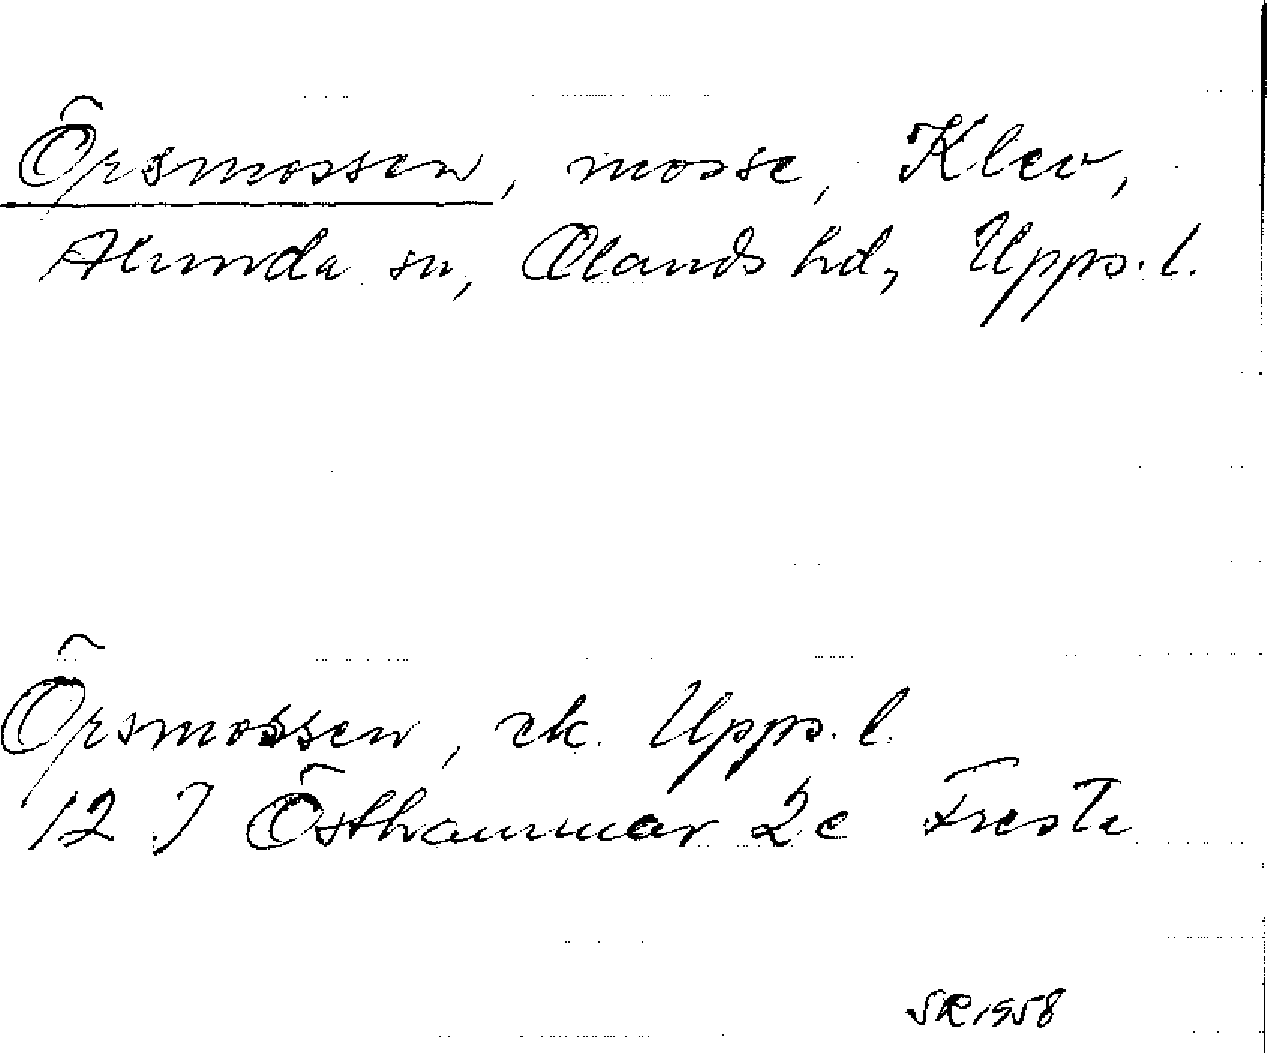 Öpsmossen, mosse, Klev,
Alunda sn, Olands hd, Upps. l.
Öpsmossen, ek. Upps. l.
12 I Östhammar 2c
SR 1958